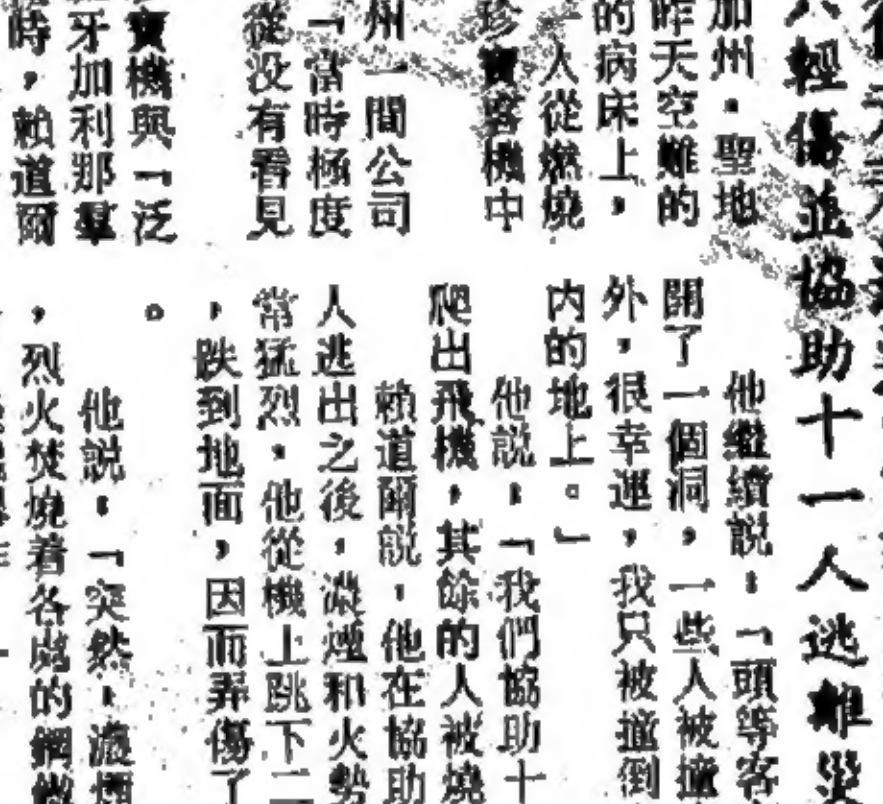 人輕傷並協助十一人逃離災
加州．聖地
昨天空難的
的病床上，
一人從燃燒
珍寶客機中
州一間公司
「當時極度
從没有看見
寶機與「泛
牙加利那羣
時，賴道爾
他繼續説：「頭等客
開了一個洞，一些人被撞
外，很幸運，我只被撞倒
内的地上。」
他説：「我們協助十
爬出飛機，其餘的人被燒
賴道爾説，他在協助
人逃出之後，濃煙和火勢
常猛烈，他從機上跳下二
，跌到地面，因而弄傷了
。
他説：「突然，濃煙
，烈火焚燒着各處的鋼